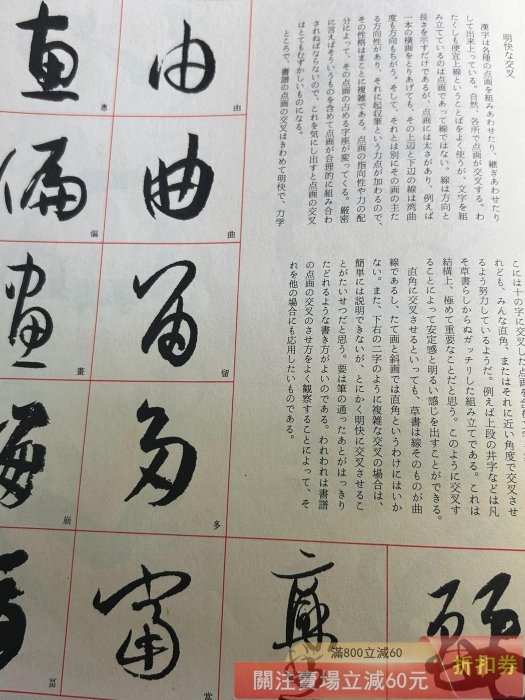 明快な交叉
漢字は各種の点画を組みあわせたり、継ぎあわせたり
して出来上っている。自然、各所で点画が交叉する。わ
たくしも便宜上線ということばをよく使うが、文字を組
み立てているのは点画であって線ではない。線は方向と
長さを示すだけであるが、点画には太さがあり、例えば
一本の横画をとりあげても、その上辺と下辺の線は湾曲
度も方向もちがう。そして、それとは別にその画の主た
る方向性があり、それに起収筆という力点が加わるので、
その性格はまことに複雑である。点画の指向性や力の配
分によって、その点画の占める字座が変ってくる。厳密
に言えばそういうものを含めて点画が合理的に組み合わ
されねばならないので、これを気にし出すと点画の交叉
はとてもむずかしいものになる。
ところで、書譜の点画の交叉はきわめて明快で、力学
こには十の字に交叉した点画を
れども、みんな直角、またはそれに近い角度で交叉させ
るよう努力しているようだ。例えば上段の井字などは凡
そ草書らしからぬガッチリした組み立てである。これは
結構上、極めて重要なことだと思う。このように交叉す
ることによって安定感と明るい感じを出すことができる。
直角に交叉させるといっても、草書は線そのものが曲
線であるし、たて画と斜画では直角というわけにはいか
ない。また、下右の二字のように複雑な交叉の場合は、
簡単には説明できないが、とにかく明快に交叉させるこ
とがたいせつだと思う。要は筆の通ったあとがはっきり
たどれるような書き方がよいのである。われわれは書譜
の点画の交叉のさせ方をよく観察することによって、そ
れを他の場合にも応用したいものである。
由
曲
留
多
當
恵
偏
畫
崩
滿800立減60
關注賣場立減60元
折扣券